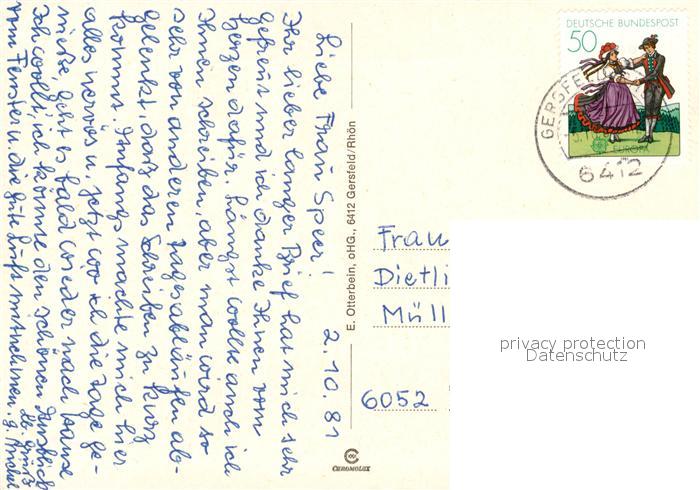 Liebe Frau Speer! 2.10.81
Ihr lieber langer Brief hat mich sehr
gefreut und ich danke Ihnen von
Herzen dafür. Längst wollte auch ich
Ihnen schreiben, aber man wird so
sehr von anderen Tagesabläufen ab-
gelenkt, daß das Schreiben zu kurz
kommt. Anfangs machte mich hier
alles nervös u. jetzt wo ich die Tage ge-
nieße, geht es bald wieder nach Hause
Ich wollt', ich könnte den schönen Ausblick
vom Fenster u. die gute Luft mitnehmen.
E. Otterbein, oHG., 6412 Gersfeld/Rhön
CHROMOLUX
DEUTSCHE BUNDESPOST
50
EUROPA
GERSFE
6412
Frau
Dietli
Müll
6052
privacy protection
Datenschutz